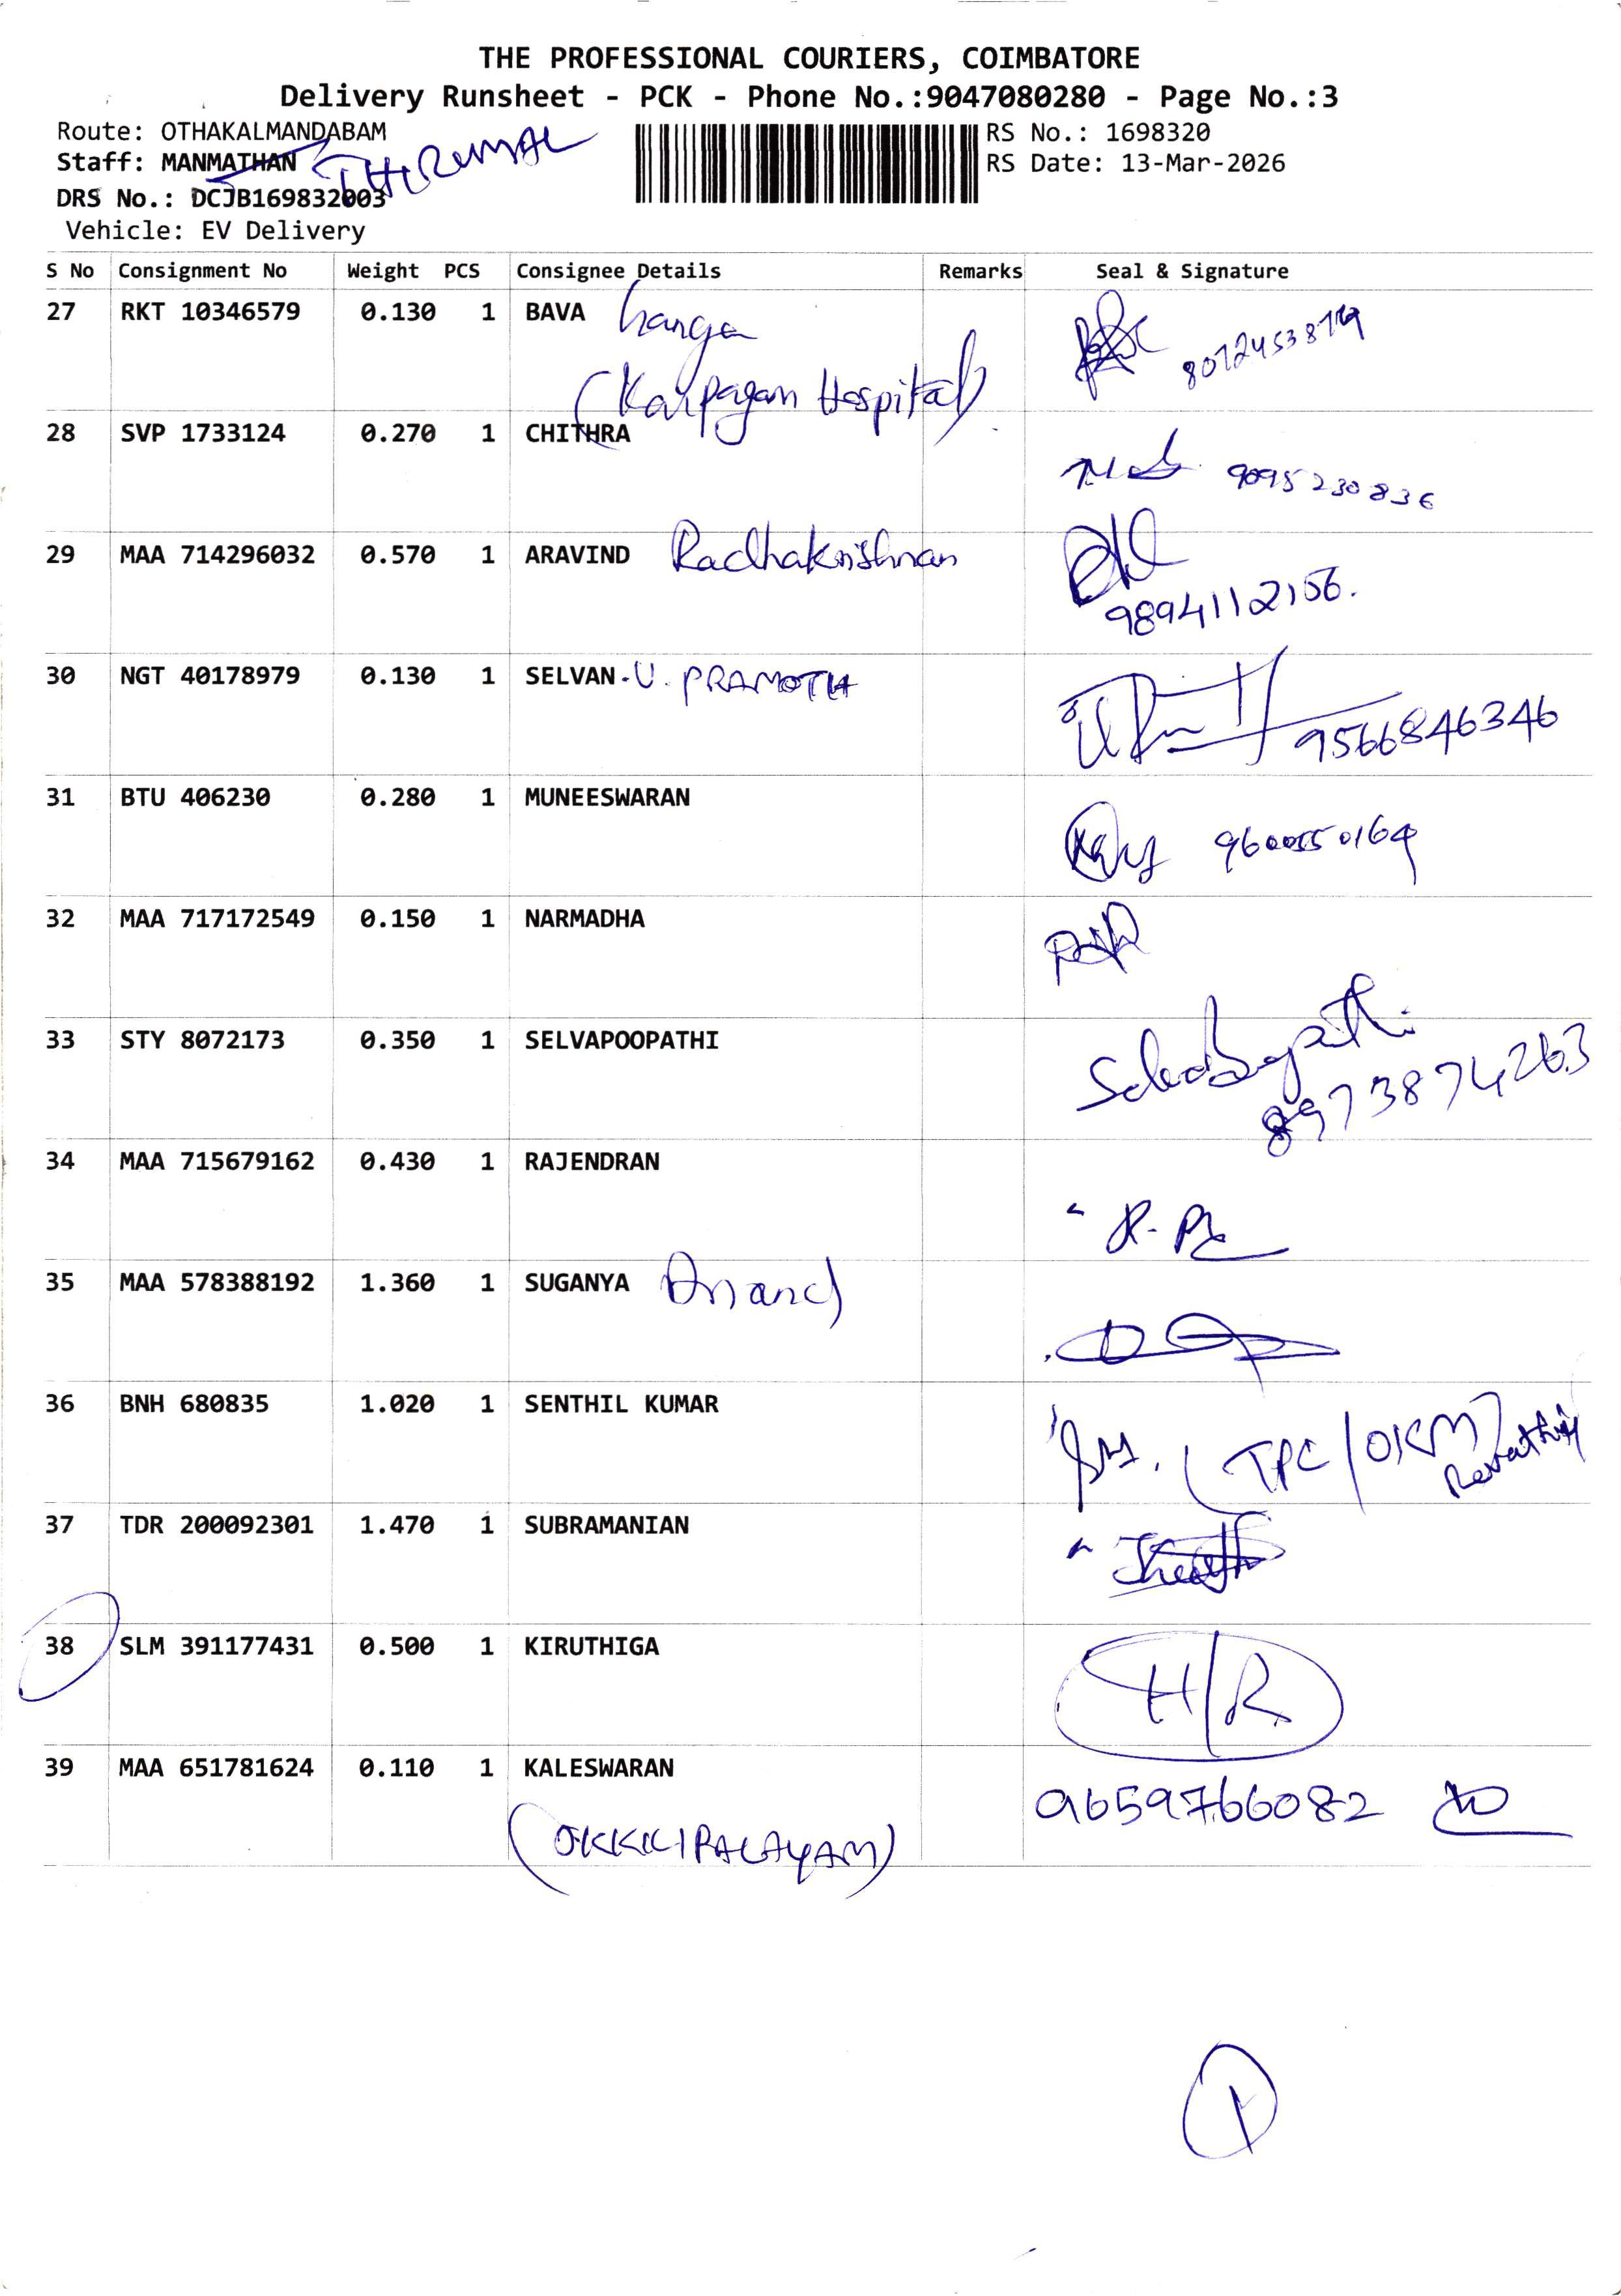 THE PROFESSIONAL COURIERS, COIMBATORE
Delivery Runsheet - PCK - Phone No.:9047080280 - Page No.:3
Route: OTHAKALMANDABAM
RS No.: 1698320
Staff: MANMATHAN THIRUMAL
RS Date: 13-Mar-2026
DRS No.: DCJB169832003
Vehicle: EV Delivery
S No Consignment No Weight PCS Consignee Details Remarks Seal & Signature
27 RKT 10346579 0.130 1 BAVA
(Karpagam Hospital)
28 SVP 1733124 0.270 1 CHITHRA
9095230836
29 MAA 714296032 0.570 1 ARAVIND Radhakrishnan
9894112156.
30 NGT 40178979 0.130 1 SELVAN.U. PRAMOTH
9566846346
31 BTU 406230 0.280 1 MUNEESWARAN
32 MAA 717172549 0.150 1 NARMADHA
33 STY 8072173 0.350 1 SELVAPOOPATHI
8973874263
34 MAA 715679162 0.430 1 RAJENDRAN
35 MAA 578388192 1.360 1 SUGANYA Anand
36 BNH 680835 1.020 1 SENTHIL KUMAR
(TPC/OKM)
Revathi
37 TDR 200092301 1.470 1 SUBRAMANIAN
38 SLM 391177431 0.500 1 KIRUTHIGA H/R
39 MAA 651781624 0.110 1 KALESWARAN
9659766082
(OKKKIPALAYAM)
1